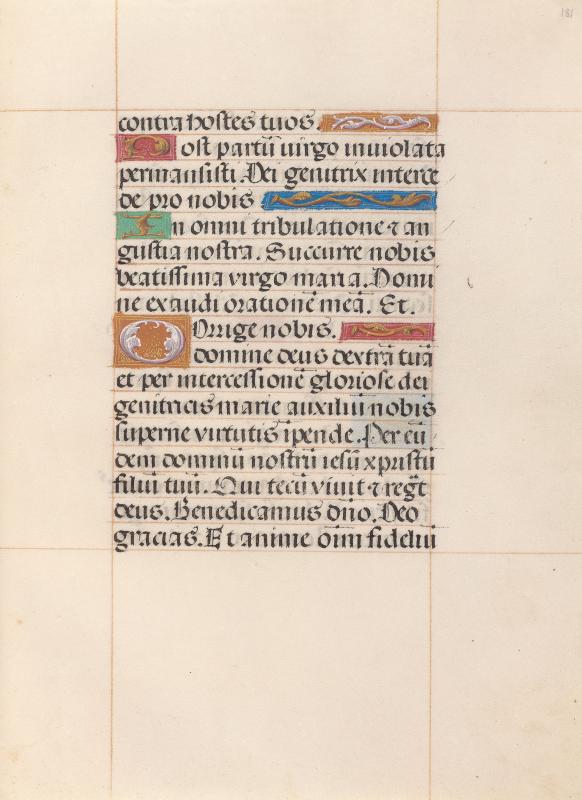 181
contra hostes tuos.
Post partū uirgo inuiolata
permansisti. Dei genitrix interce
de pro nobis
In omni tribulatione ⁊ an
gustia nostra. Succurre nobis
beatissima virgo maria. Domi
ne exaudi orationē meā. Et.
Porrige nobis.
domine deus dextrā tuā
et per intercessionē gloriose dei
genitricis marie auxiliū nobis
superne virtutis īpende. Per eū
dem dominū nostrū iesū xpristū
filiū tuū. Qui tecū viuit ⁊ regt̄
deus. Benedicamus dn̄o. Deo
gracias. Et anime oīm fideliū